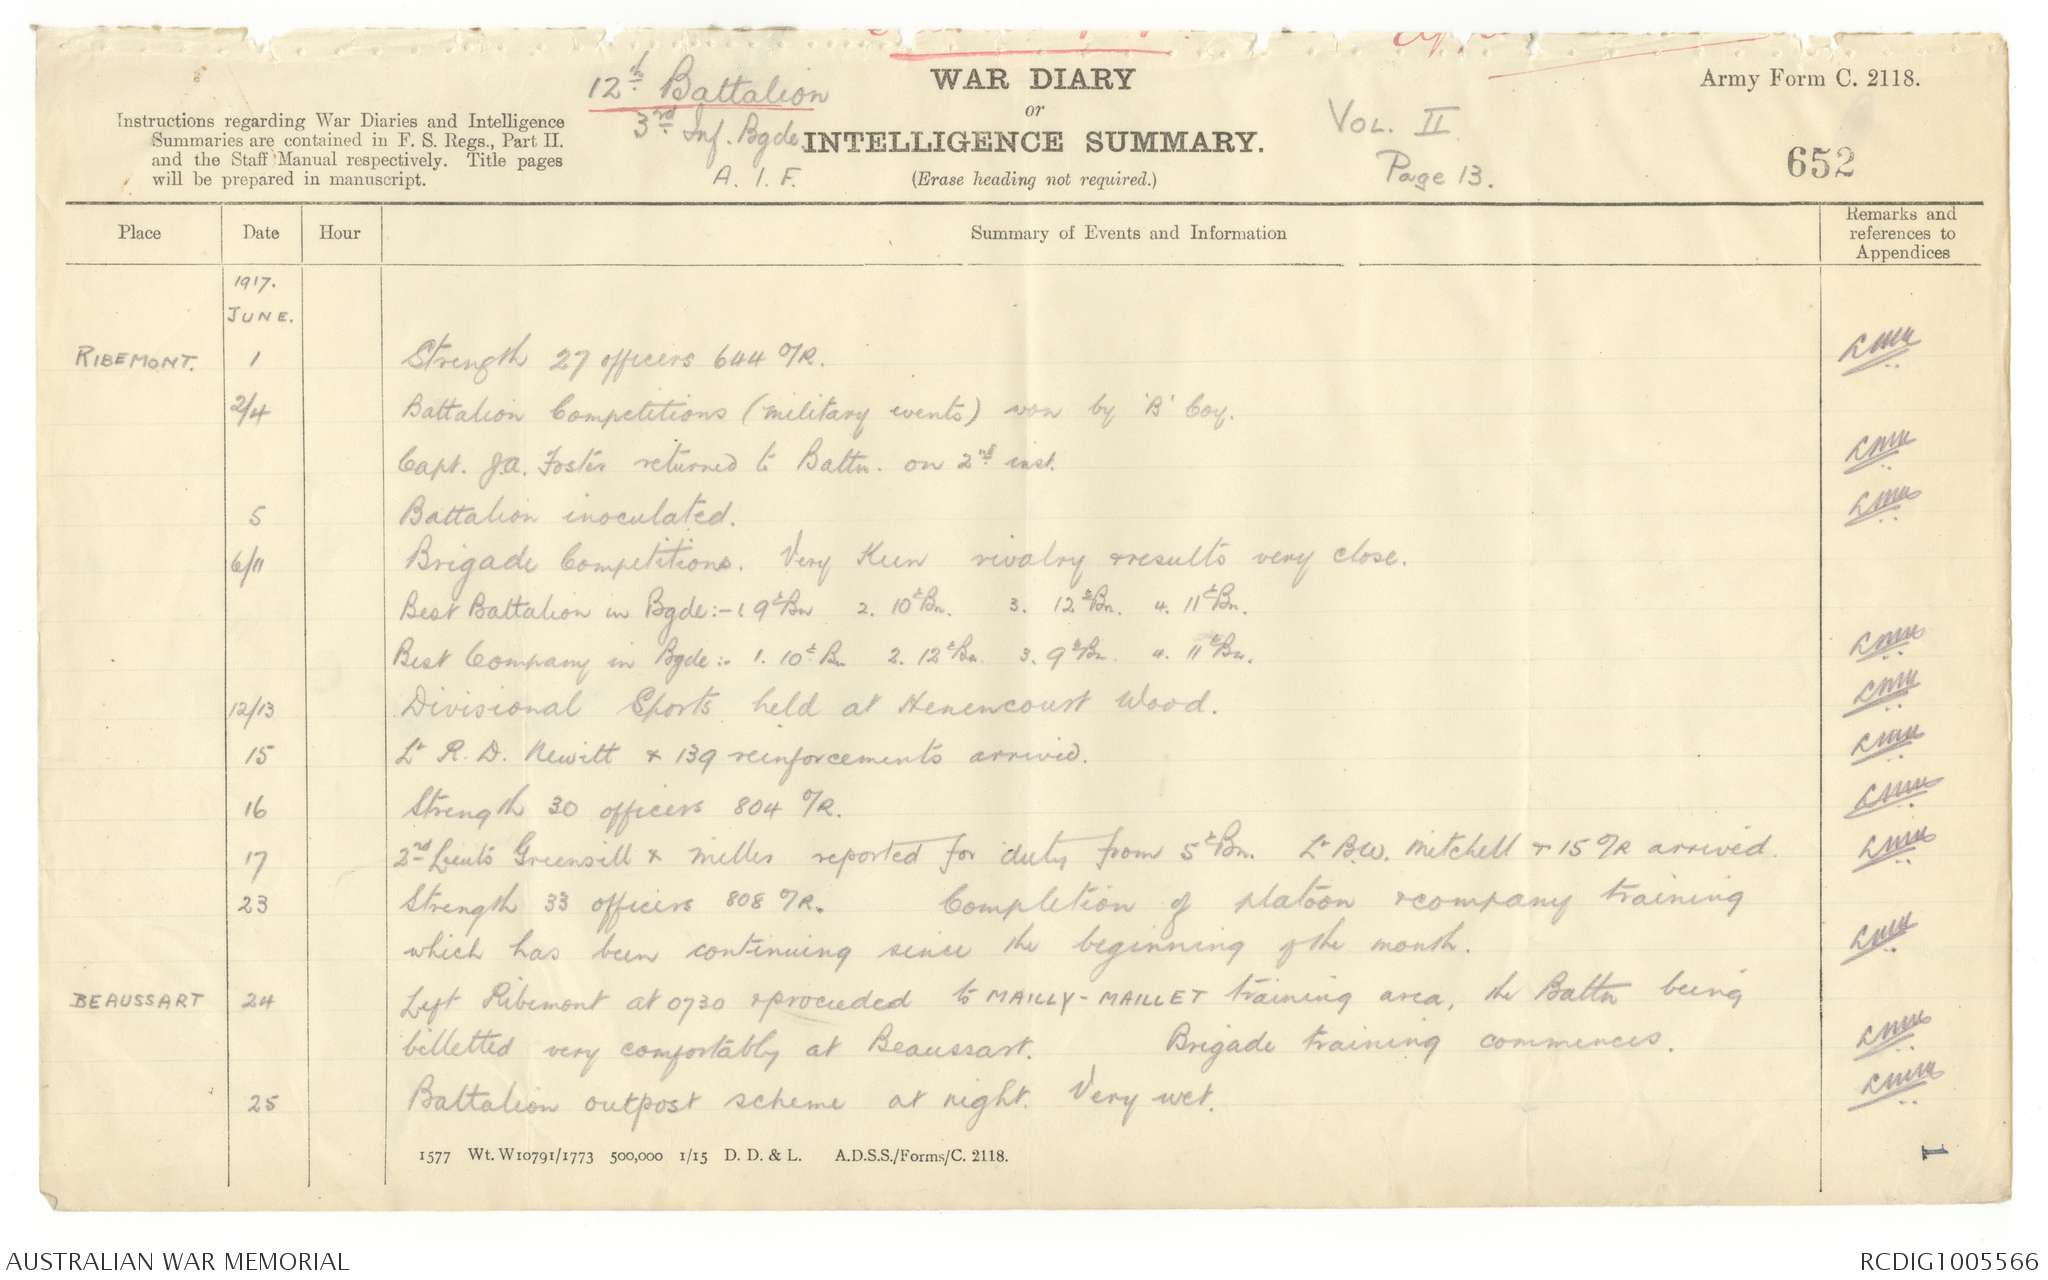 12th Battalion
3rd Inf. Bgde
A. I. F.
WAR DIARY
or
INTELLIGENCE SUMMARY.
(Erase heading not required.)
Instructions regarding War Diaries and Intelligence
Summaries are contained in F. S. Regs., Part II.
and the Staff Manual respectively. Title pages
will be prepared in manuscript.
VOL. II
Page 13.
Army Form C. 2118.
652
Place Date Hour Summary of Events and Information Remarks and
references to
Appendices
1917.
JUNE.
RIBEMONT. 1 Strength 27 officers 644 O/R.
2/4 Battalion Competitions (military events) won by 'B' Coy.
Capt. J.A. Foster returned to Battn. on 2nd inst.
5 Battalion inoculated.
6/11 Brigade Competitions. Very Keen rivalry & results very close.
Best Battalion in Bgde:- 1. 9th Bn 2. 10th Bn. 3. 12th Bn. 4. 11th Bn.
Best Company in Bgde:- 1. 10th Bn 2. 12th Bn. 3. 9th Bn. 4. 11th Bn.
12/13 Divisional Sports held at Henencourt Wood.
15 Lt R. D. Newitt & 139 reinforcements arrived.
16 Strength 30 officers 804 O/R.
17 2nd Lieuts Greensill & Miller reported for duty from 5th Bn. Lt B.W. Mitchell & 15 O/R arrived.
23 Strength 33 officers 808 O/R. Completion of platoon & company training
which has been continuing since the beginning of the month.
BEAUSSART 24 Left Ribemont at 0730 & proceeded to MAILLY-MAILLET training area, the Battn being
billetted very comfortably at Beaussart. Brigade training commences.
25 Battalion outpost scheme at night. Very wet.
1577 Wt. W10791/1773 500,000 1/15 D. D. & L. A.D.S.S./Forms/C. 2118.
1
AUSTRALIAN WAR MEMORIAL
RCDIG1005566